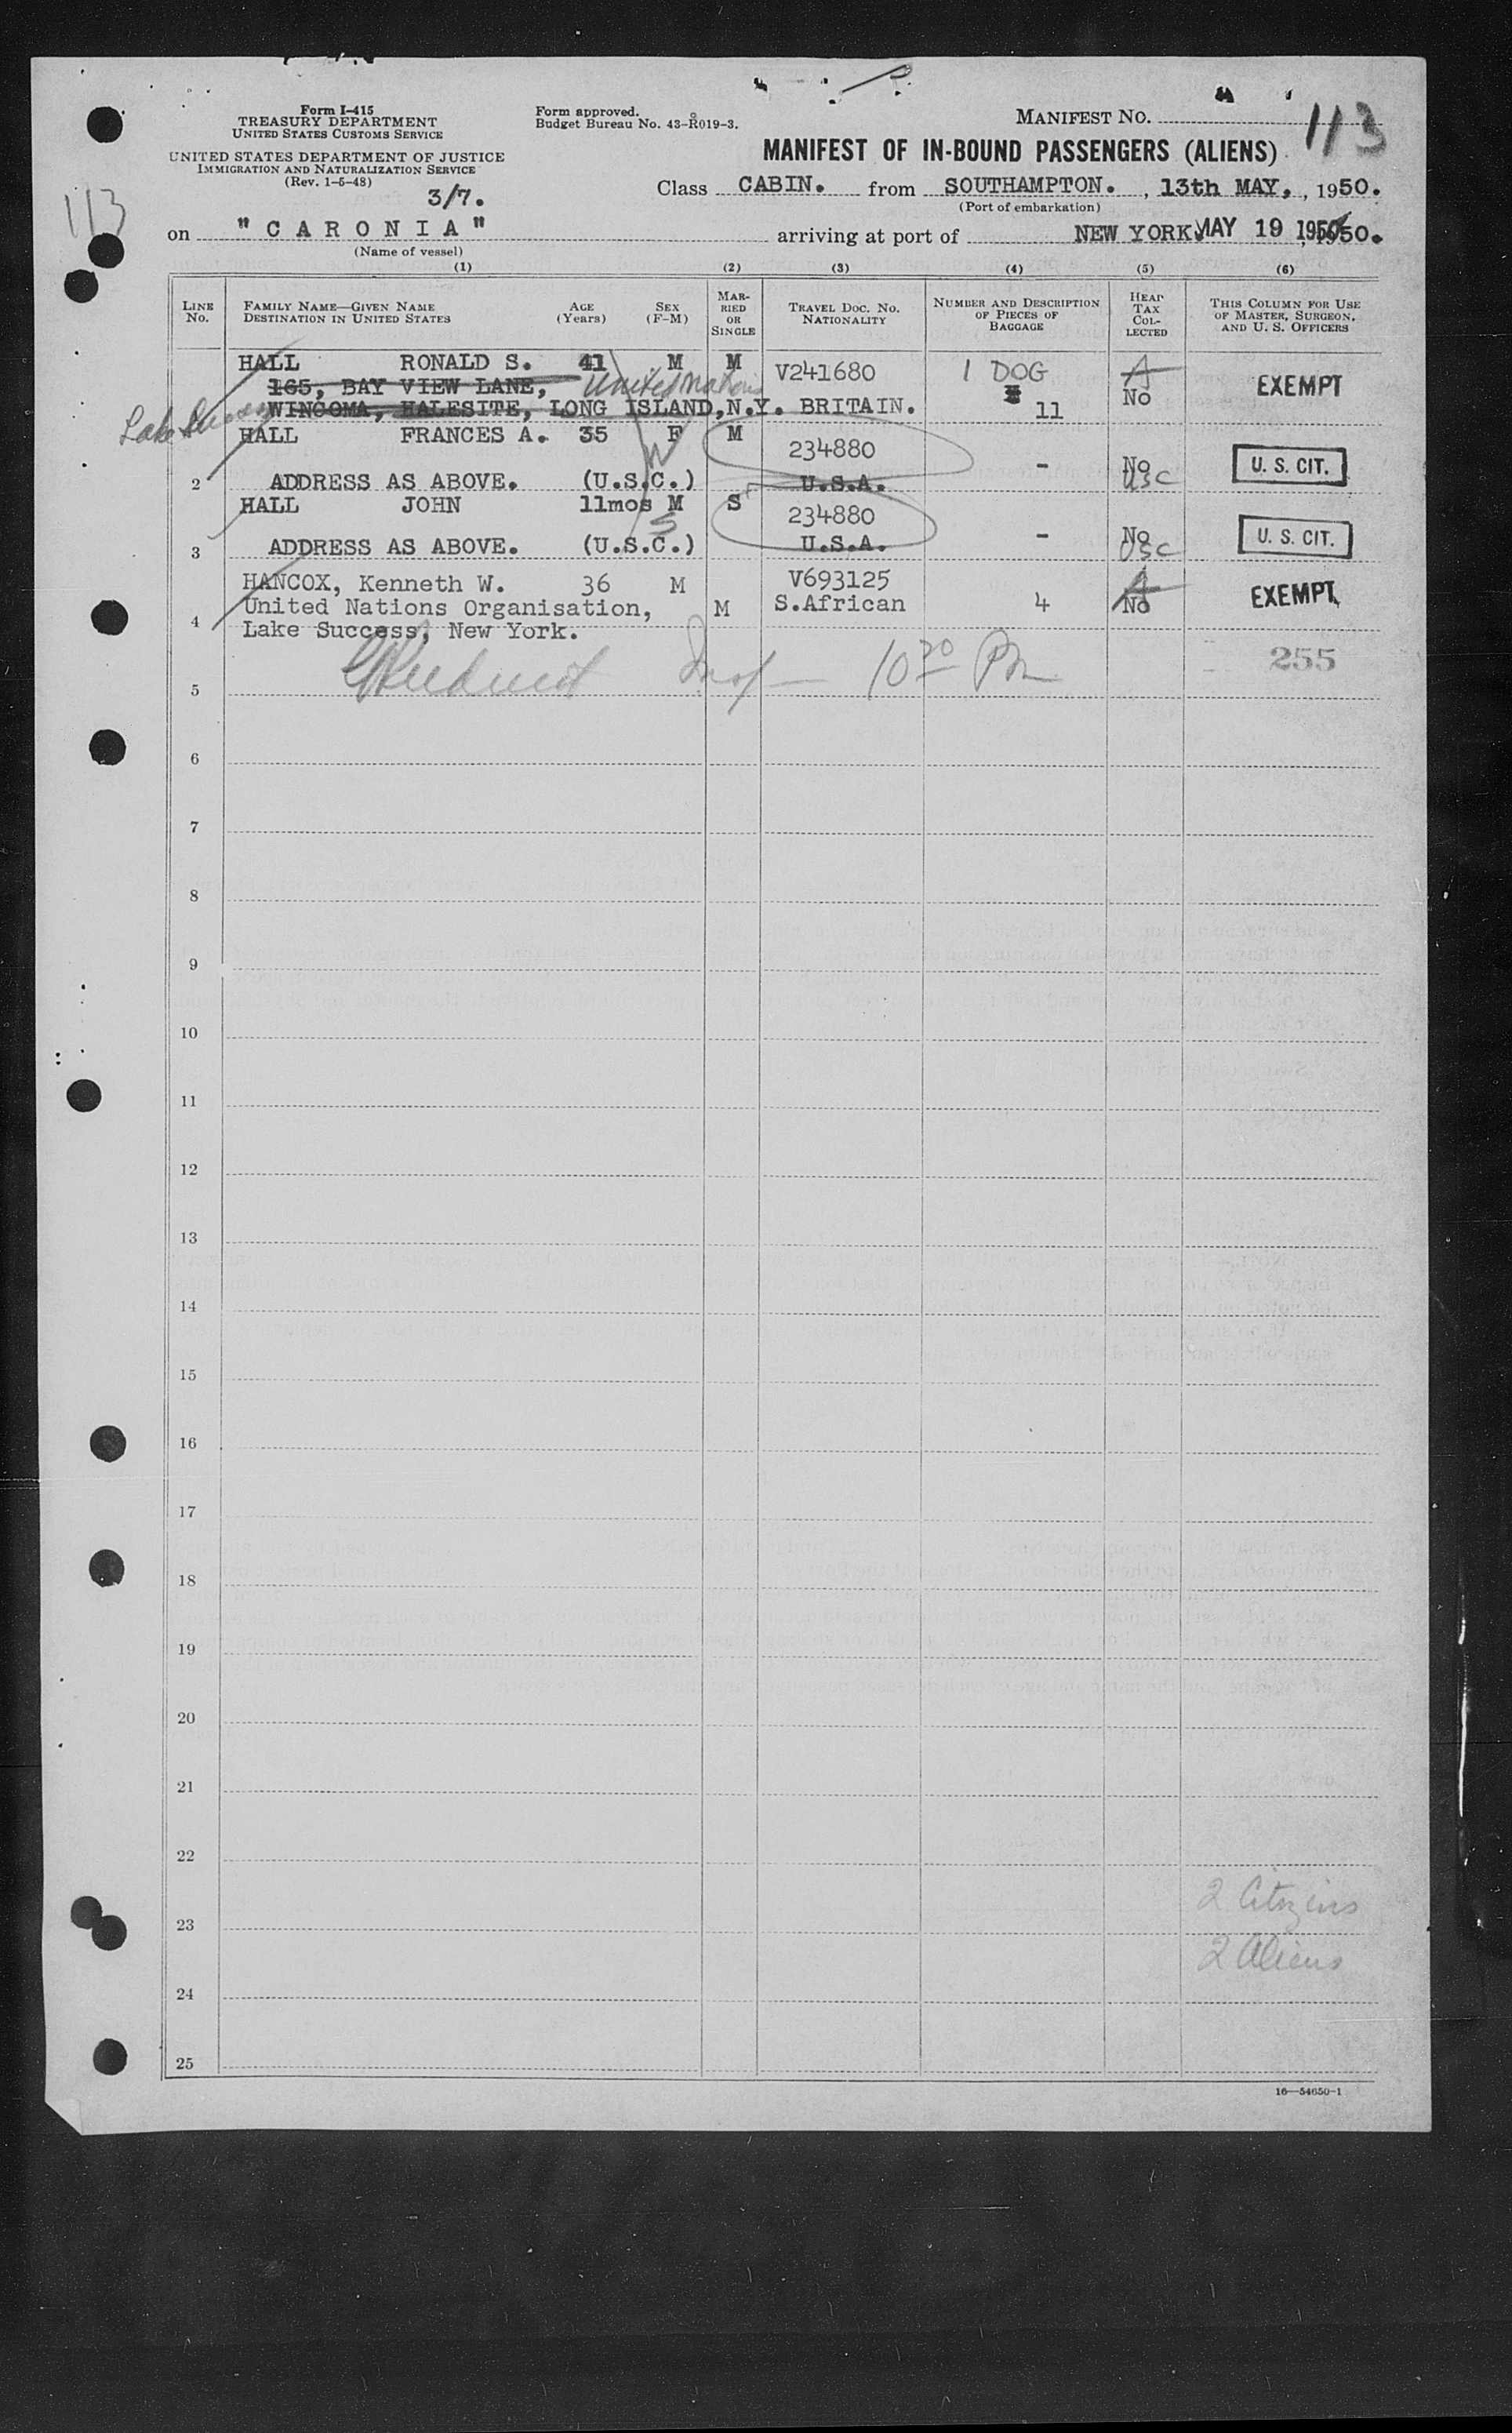 Form I-415
TREASURY DEPARTMENT
UNITED STATES CUSTOMS SERVICE
UNITED STATES DEPARTMENT OF JUSTICE
IMMIGRATION AND NATURALIZATION SERVICE
(Rev. 1-5-48)
Form approved.
Budget Bureau No. 43-R019-3.
MANIFEST NO. 113
MANIFEST OF IN-BOUND PASSENGERS (ALIENS)
113
3/7.
Class CABIN. from SOUTHAMPTON. , 13th MAY, , 1950.
(Port of embarkation)
on "CARONIA" arriving at port of NEW YORK. MAY 19 1950 , 1950.
(Name of vessel)
(1) (2) (3) (4) (5) (6)
LINE No. FAMILY NAME—GIVEN NAME DESTINATION IN UNITED STATES AGE (Years) SEX (F-M) MARRIED OR SINGLE TRAVEL DOC. NO. NATIONALITY NUMBER AND DESCRIPTION OF PIECES OF BAGGAGE HEAD TAX COLLECTED THIS COLUMN FOR USE OF MASTER, SURGEON, AND U. S. OFFICERS
HALL RONALD S. 41 M M V241680 1 DOG A
165, BAY VIEW LANE, United Nations No EXEMPT
Lake Success WINCOMA, HALESITE, LONG ISLAND, N.Y. BRITAIN. 11
HALL FRANCES A. 35 F M 234880
W
2 ADDRESS AS ABOVE. (U.S.C.) U.S.A. - No USC U. S. CIT.
HALL JOHN 11mos M S 234880
S
3 ADDRESS AS ABOVE. (U.S.C.) U.S.A. - No USC U. S. CIT.
HANCOX, Kenneth W. 36 M V693125 A
4 United Nations Organisation, M S.African 4 No EXEMPT
Lake Success, New York.
10 30 PM 255
5
6
7
8
9
10
11
12
13
14
15
16
17
18
19
20
21
22
2 Citizens
23
2 Aliens
24
25
16—54650-1